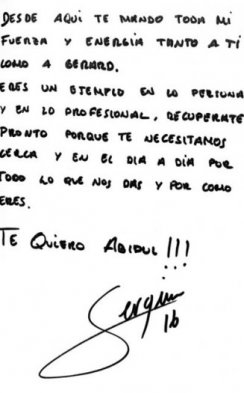 DESDE AQUÍ TE MANDO TODA MI
FUERZA Y ENERGÍA TANTO A TÍ
COMO A GERARD.
ERES UN EJEMPLO EN LO PERSONA
Y EN LO PROFESIONAL, RECUPERATE
PRONTO PORQUE TE NECESITAMOS
CERCA Y EN EL DIA A DÍA POR
TODO LO QUE NOS DAS Y POR COMO
ERES.
TE QUIERO ABIDUL !!!
Sergio
16